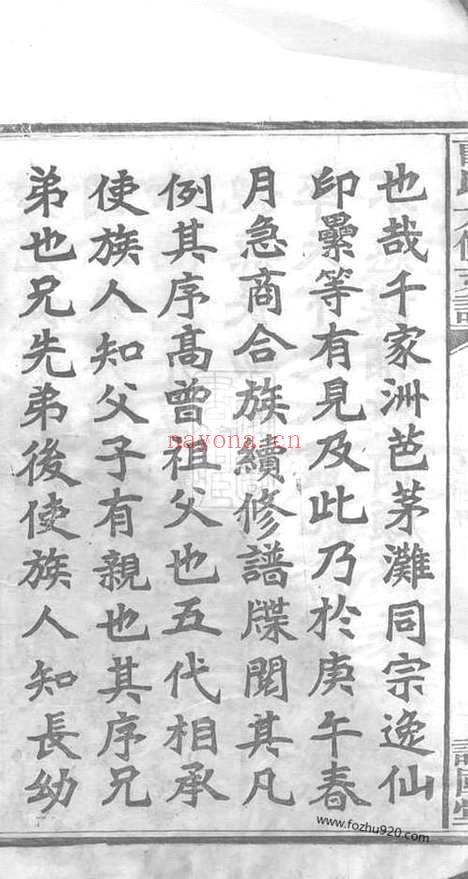 也哉千家洲芭茅灘同宗逸仙
印纍等有見及此乃於庚午春
月急商合族續修譜牒閱其凡
例其序高曾祖父也五代相承
使族人知父子有親也其序兄
弟也兄先弟後使族人知長幼
nayona.cn
www.fozhu920.com